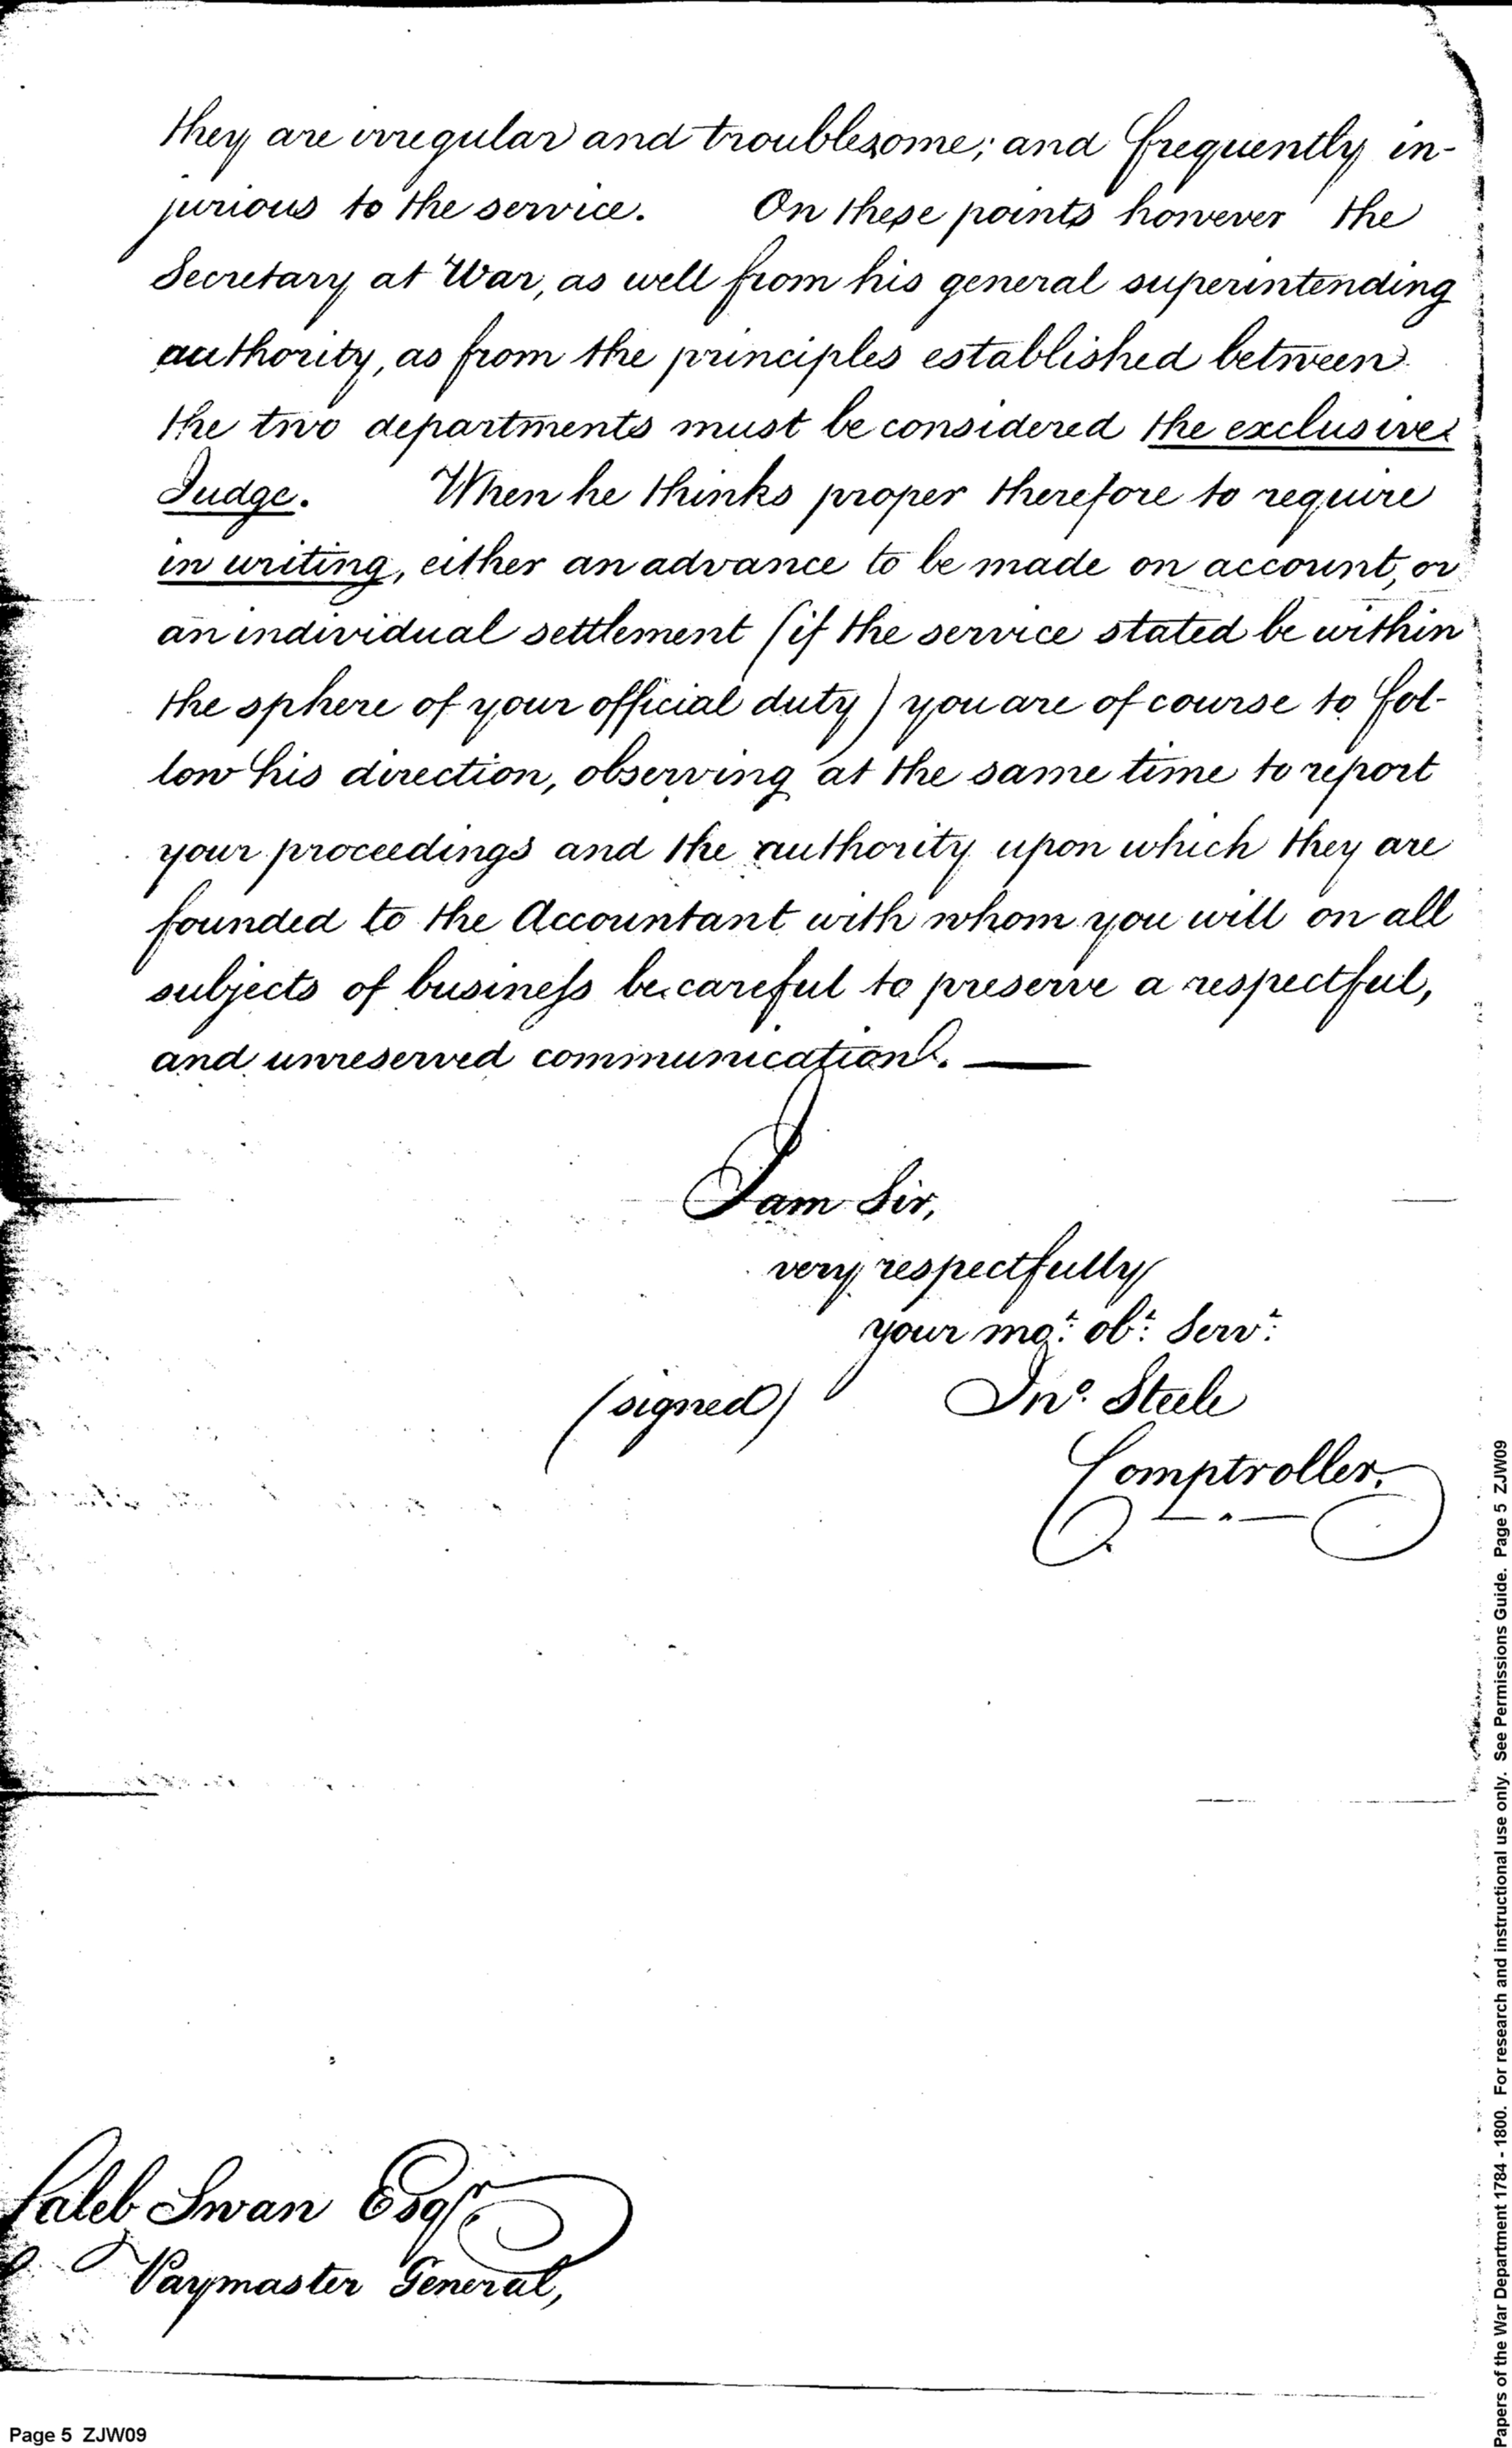 they are irregular and troublesome; and frequently in-
jurious to the service. On these points however the
Secretary at War, as well from his general superintending
authority, as from the principles established between
the two departments must be considered the exclusive
Judge. When he thinks proper therefore to require
in writing, either an advance to be made on account, or
an individual settlement (if the service stated be within
the sphere of your official duty) you are of course to fol-
low his direction, observing at the same time to report
your proceedings and the authority upon which they are
founded to the Accountant with whom you will on all
subjects of business be careful to preserve a respectful,
and unreserved communication. —
I am Sir,
very respectfully
your mot. obt. Servt.
(signed) Jno. Steele
Comptroller.
Caleb Swan Esqr.
Paymaster General,
Page 5 ZJW09
Papers of the War Department 1784 - 1800. For research and instructional use only. See Permissions Guide. Page 5 ZJW09